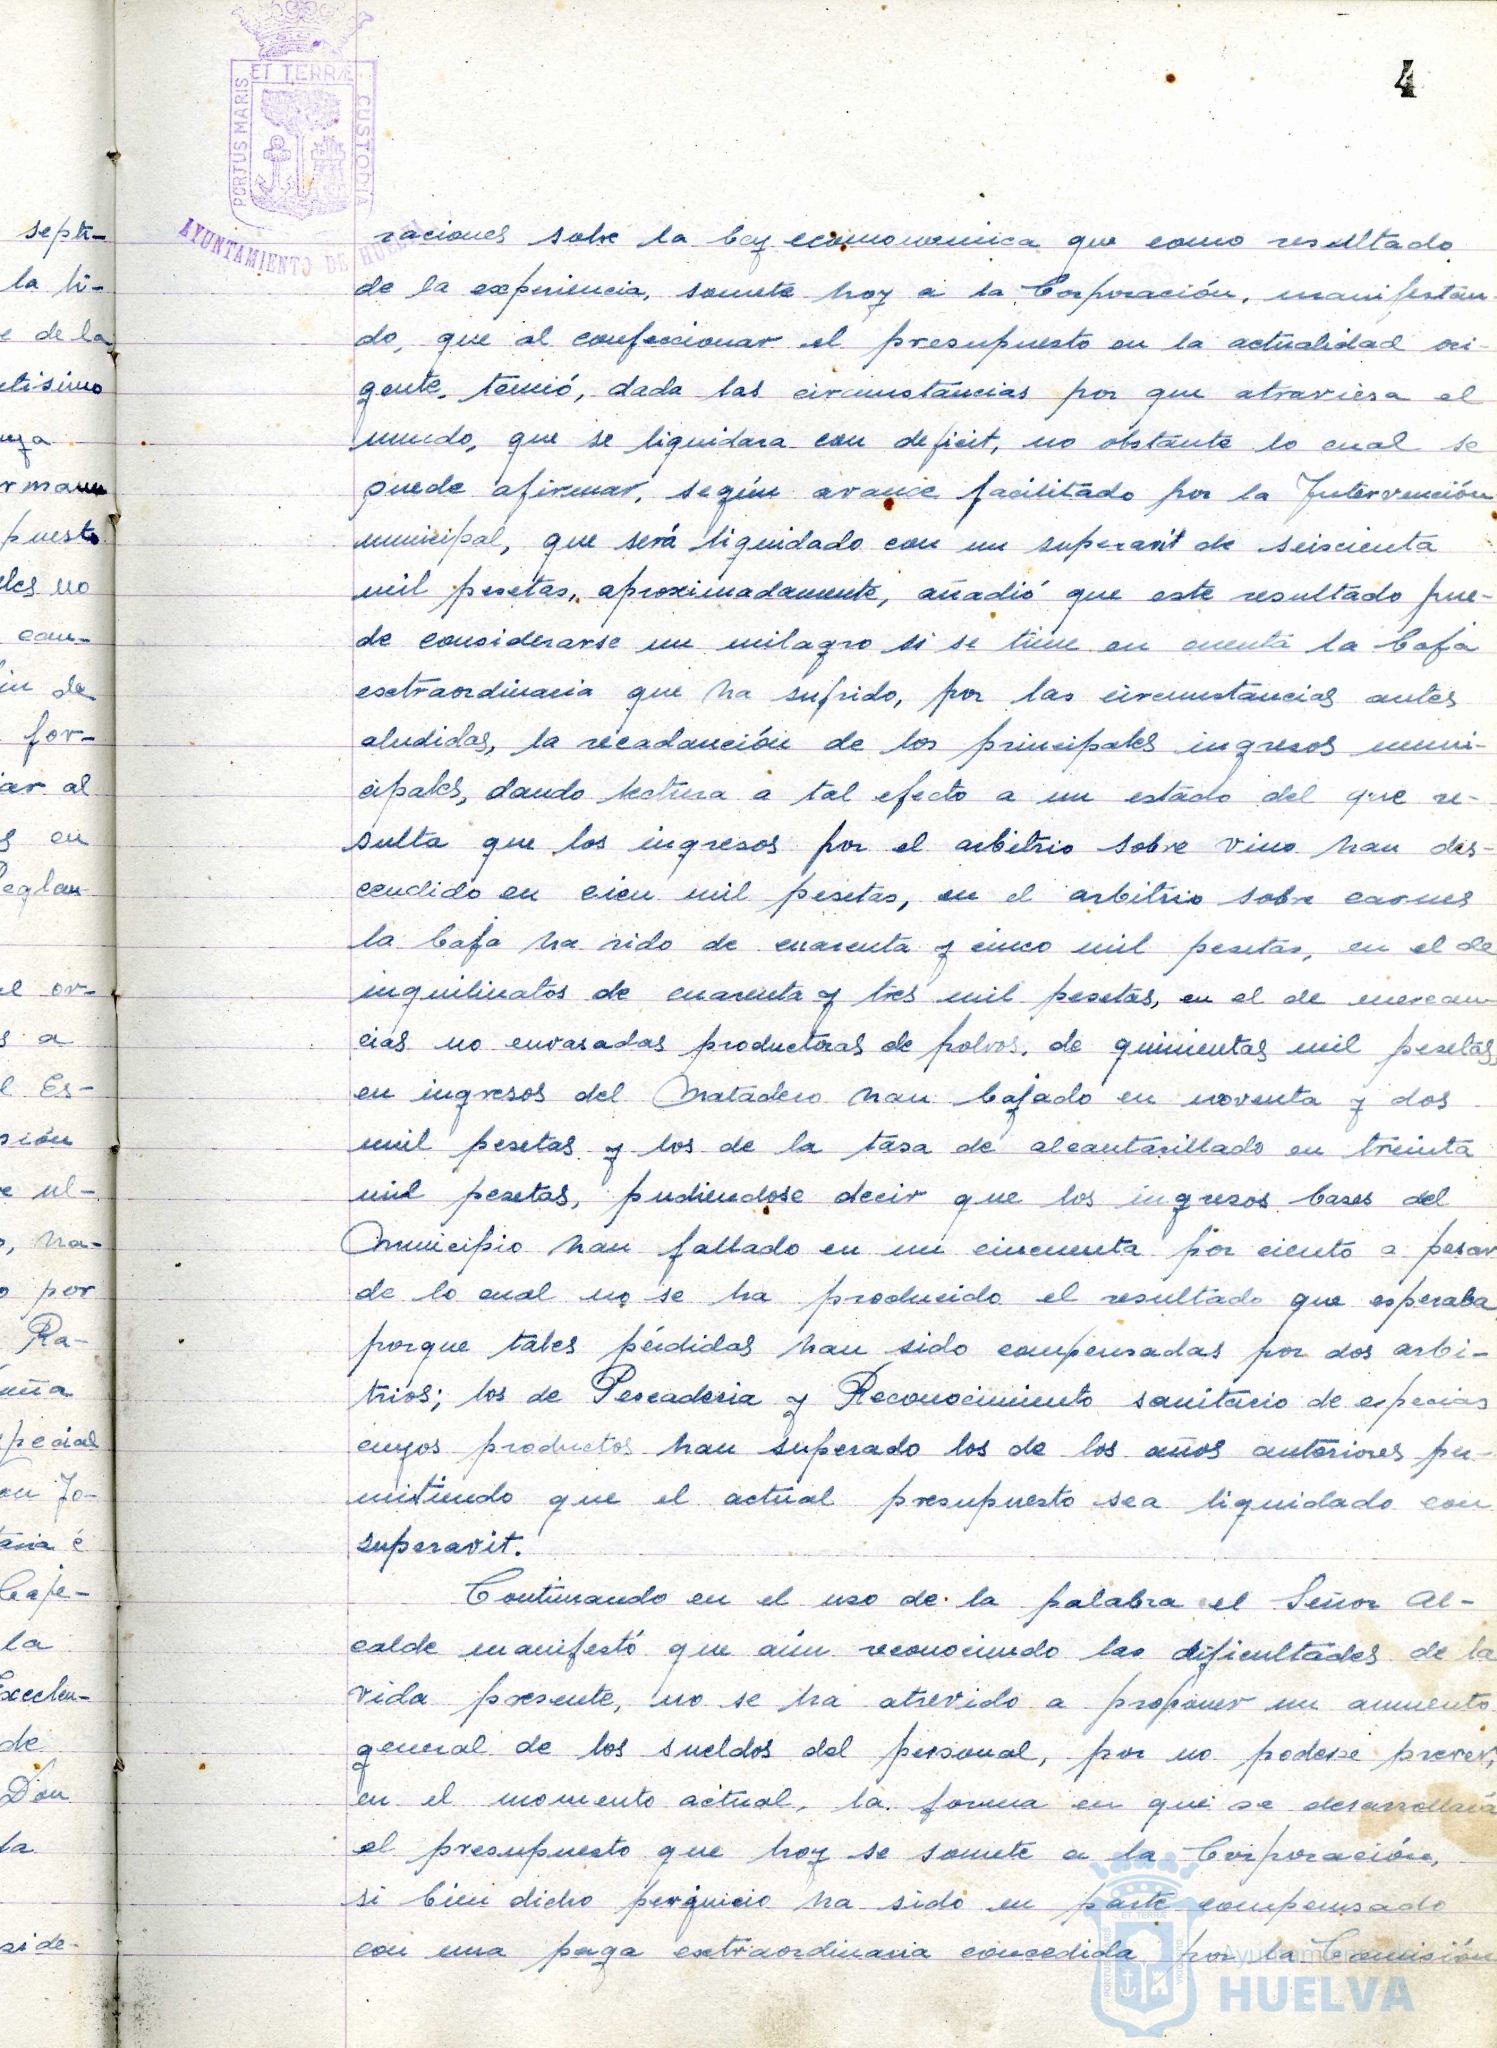 4
PORTUS MARIS ET TERRÆ CUSTODIA
AYUNTAMIENTO DE HUELVA
raciones sobre la Ley economomica que como resultado
de la experiencia, somete hoy a la Corporación, manifestán-
do, que al confeccionar el presupuesto en la actualidad vi-
gente, temió, dada las circunstáncias por que atraviesa el
mundo, que se liquidara con deficit, no obstante lo cual se
puede afirmar, según avance facilitado por la Intervención
municipal, que será liquidado con un superavit de seiscienta
mil pesetas, aproximadamente, añadió que este resultado pue-
de considerarse un milagro si se tiene en cuenta la baja
extraordinaria que ha sufrido, por las circunstancias antes
aludidas, la recadanción de los principales ingresos muni-
cipales, dando lectura a tal efecto a un estado del que re-
sulta que los ingresos por el arbitrio sobre vino han des-
cendido en cien mil pesetas, en el arbitrio sobre carnes
la baja ha sido de cuarenta y cinco mil pesetas, en el de
inquilinatos de cuarenta y tres mil pesetas, en el de mercan-
cias no envasadas productoras de polvos, de quinientas mil pesetas,
en ingresos del Matadero han bajado en noventa y dos
mil pesetas y los de la tasa de alcantarillado en treinta
mil pesetas, pudiendose decir que los ingresos bases del
Municipio han fallado en un cincuenta por ciento a pesar
de lo cual no se ha producido el resultado que esperaba,
porque tales pérdidas han sido compensadas por dos arbi-
trios; los de Pescaderia y Reconocimiento sanitario de especias
cuyos productos han superado los de los años anteriores per-
mitiendo que el actual presupuesto sea liquidado con
superavit.
Continuando en el uso de la palabra el Señor Al-
calde manifestó que aún reconociendo las dificultades de la
vida presente, no se ha atrevido a proponer un aumento
general de los sueldos del personal, por no poderse prever,
en el momento actual, la forma en que se desarrollará
el presupuesto que hoy se somete a la Corporación,
si bien dicho perjuicio ha sido en parte compensado
con una paga extraordinaria concedida por la Comisión
septi-
la ti-
e de la
ntisimo
nza
rmann
puesto
eles no
can-
in de
for-
iar al
s en
Reglan-
el or-
s a
l Es-
sión
e ul-
o, ha-
o por
Ra-
aña
special
on Jo-
taria é
Caje-
la
Excelen-
de
Don
la
side-
Ayuntamiento
HUELVA